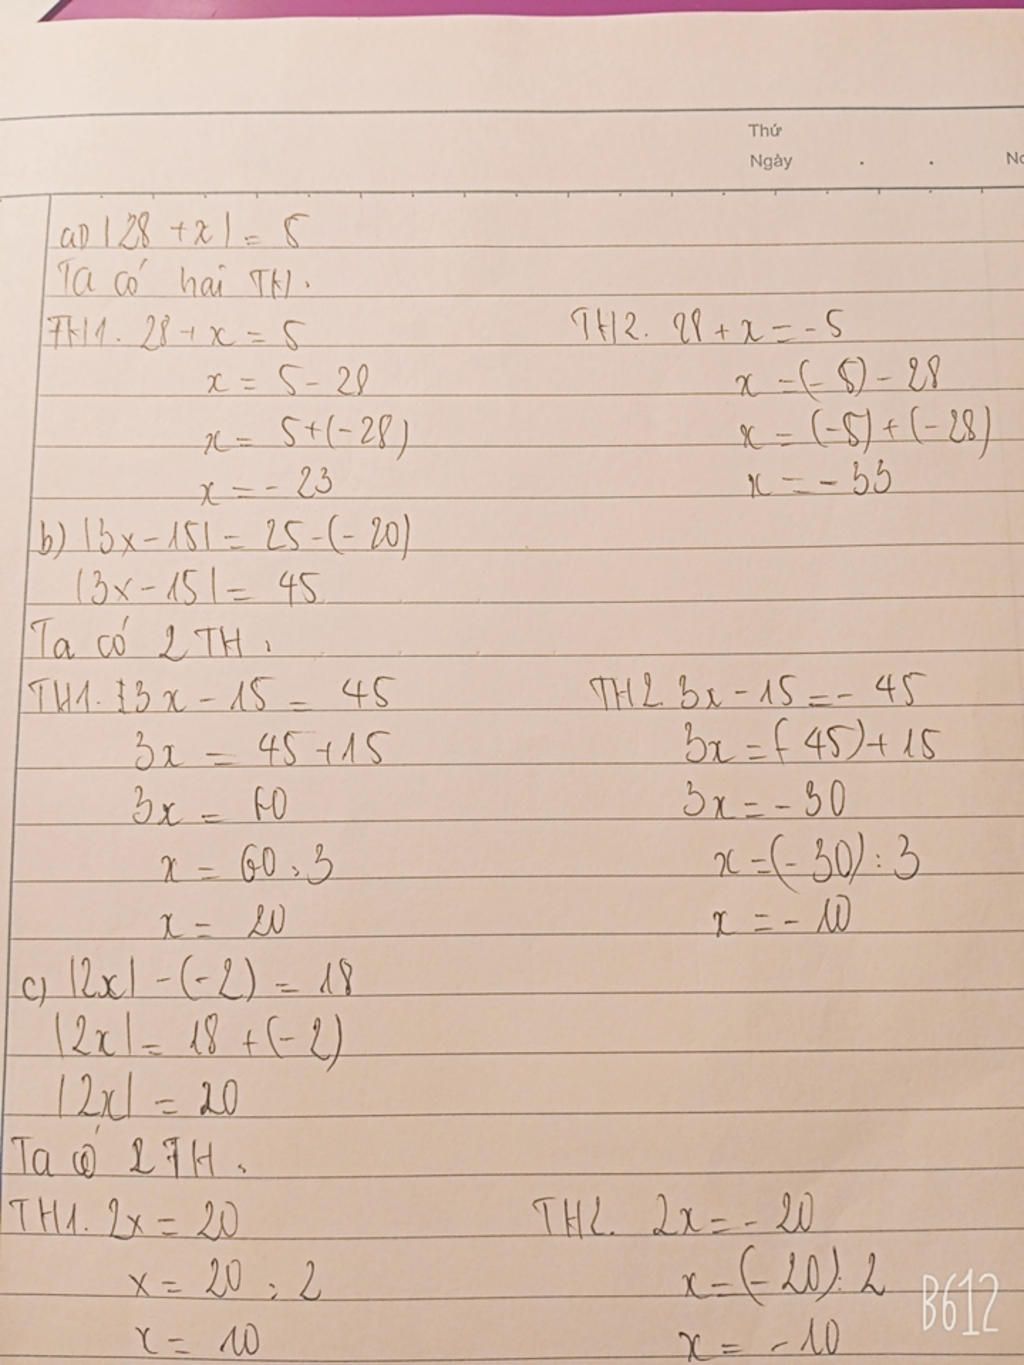 Thứ
Ngày . . No
a) |28 + x| = 5
Ta có hai TH.
TH1. 28 + x = 5 TH2. 28 + x = - 5
x = 5 - 28 x = (- 5) - 28
x = 5 + (- 28) x = (- 5) + (- 28)
x = - 23 x = - 33
b) |3x - 15| = 25 - (- 20)
|3x - 15| = 45
Ta có 2 TH.
TH1. 3x - 15 = 45 TH2. 3x - 15 = - 45
3x = 45 + 15 3x = (- 45) + 15
3x = 60 3x = - 30
x = 60 : 3 x = (- 30) : 3
x = 20 x = - 10
c) |2x| - (- 2) = 18
|2x| = 18 + (- 2)
|2x| = 20
Ta có 2 TH.
TH1. 2x = 20 TH2. 2x = - 20
x = 20 : 2 x = (- 20) : 2
x = 10 x = - 10
B612